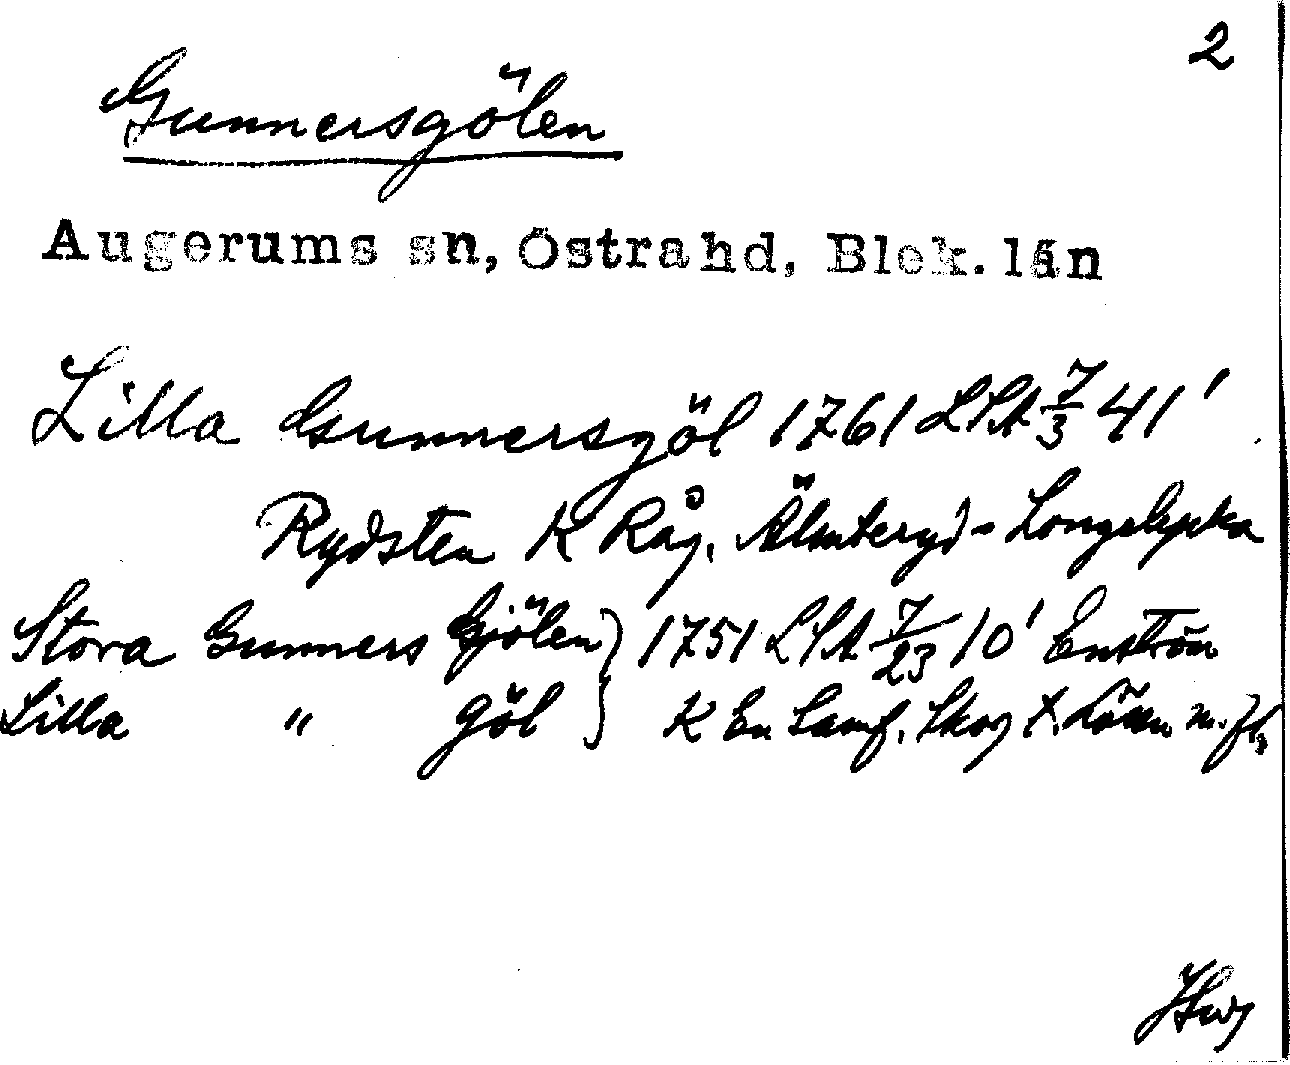 2
Gunnersgölen
Augerums sn, Östra hd, Blek. län
Lilla Gunnersgöl 1761 LSA 7/3 41'
Rydsten K Råg. Älmteryd - Longelycka
Stora Gunners Gjölen } 1751 LSA 7/23 10' Enström
Lilla " göl } K En Samf. Skog t. Lösen m.fl.